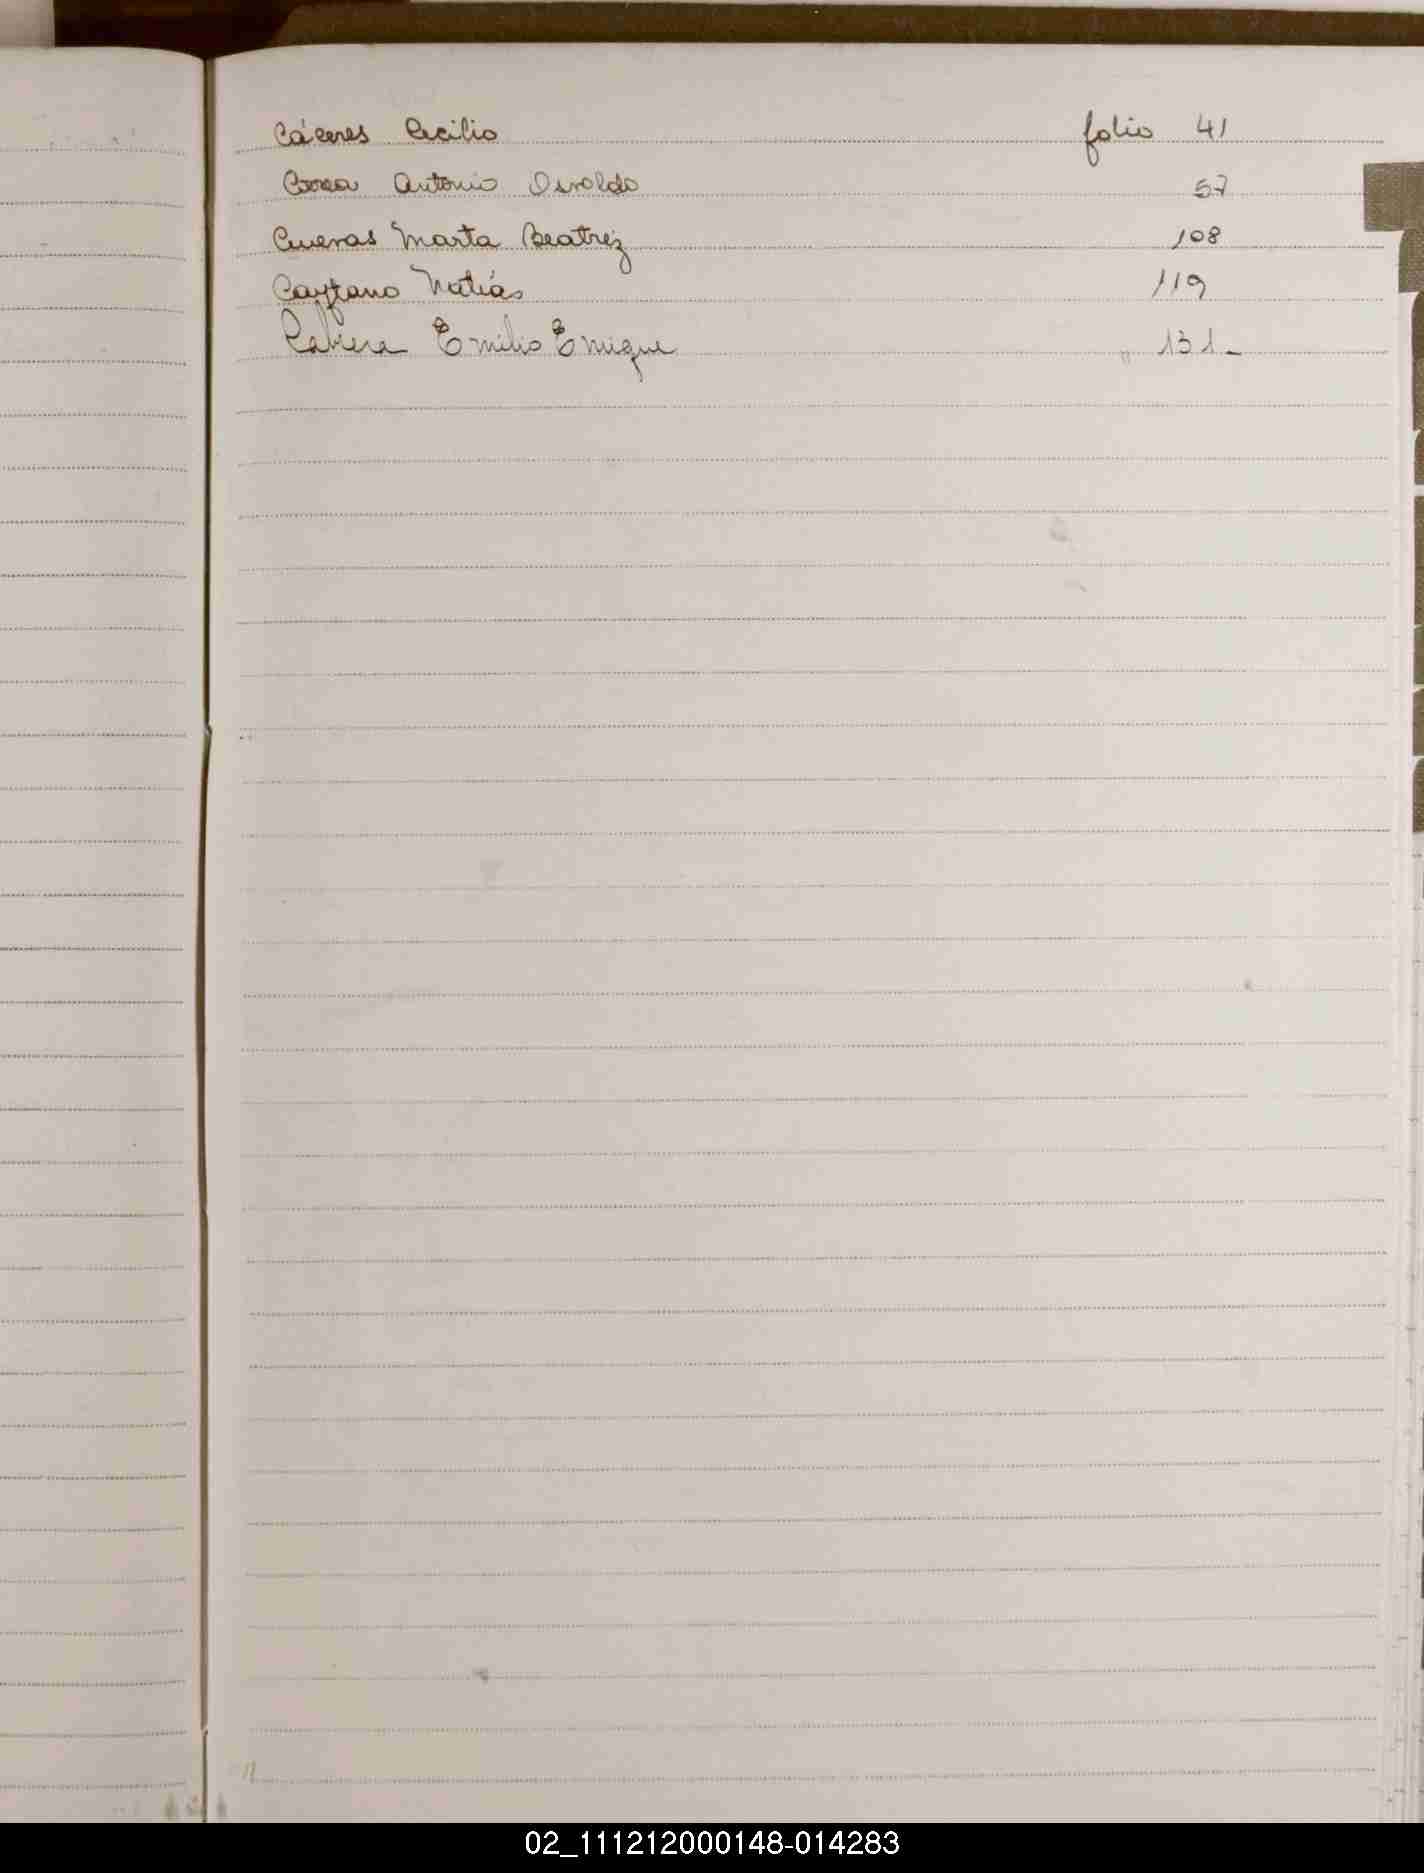 Cáceres Cecilio folio 41
Antonio Osvaldo 57
Cuevas Marta Beatriz 108
Cayetano Matías 119
Cabrera Emilio Enrique " 131-
02_111212000148-014283